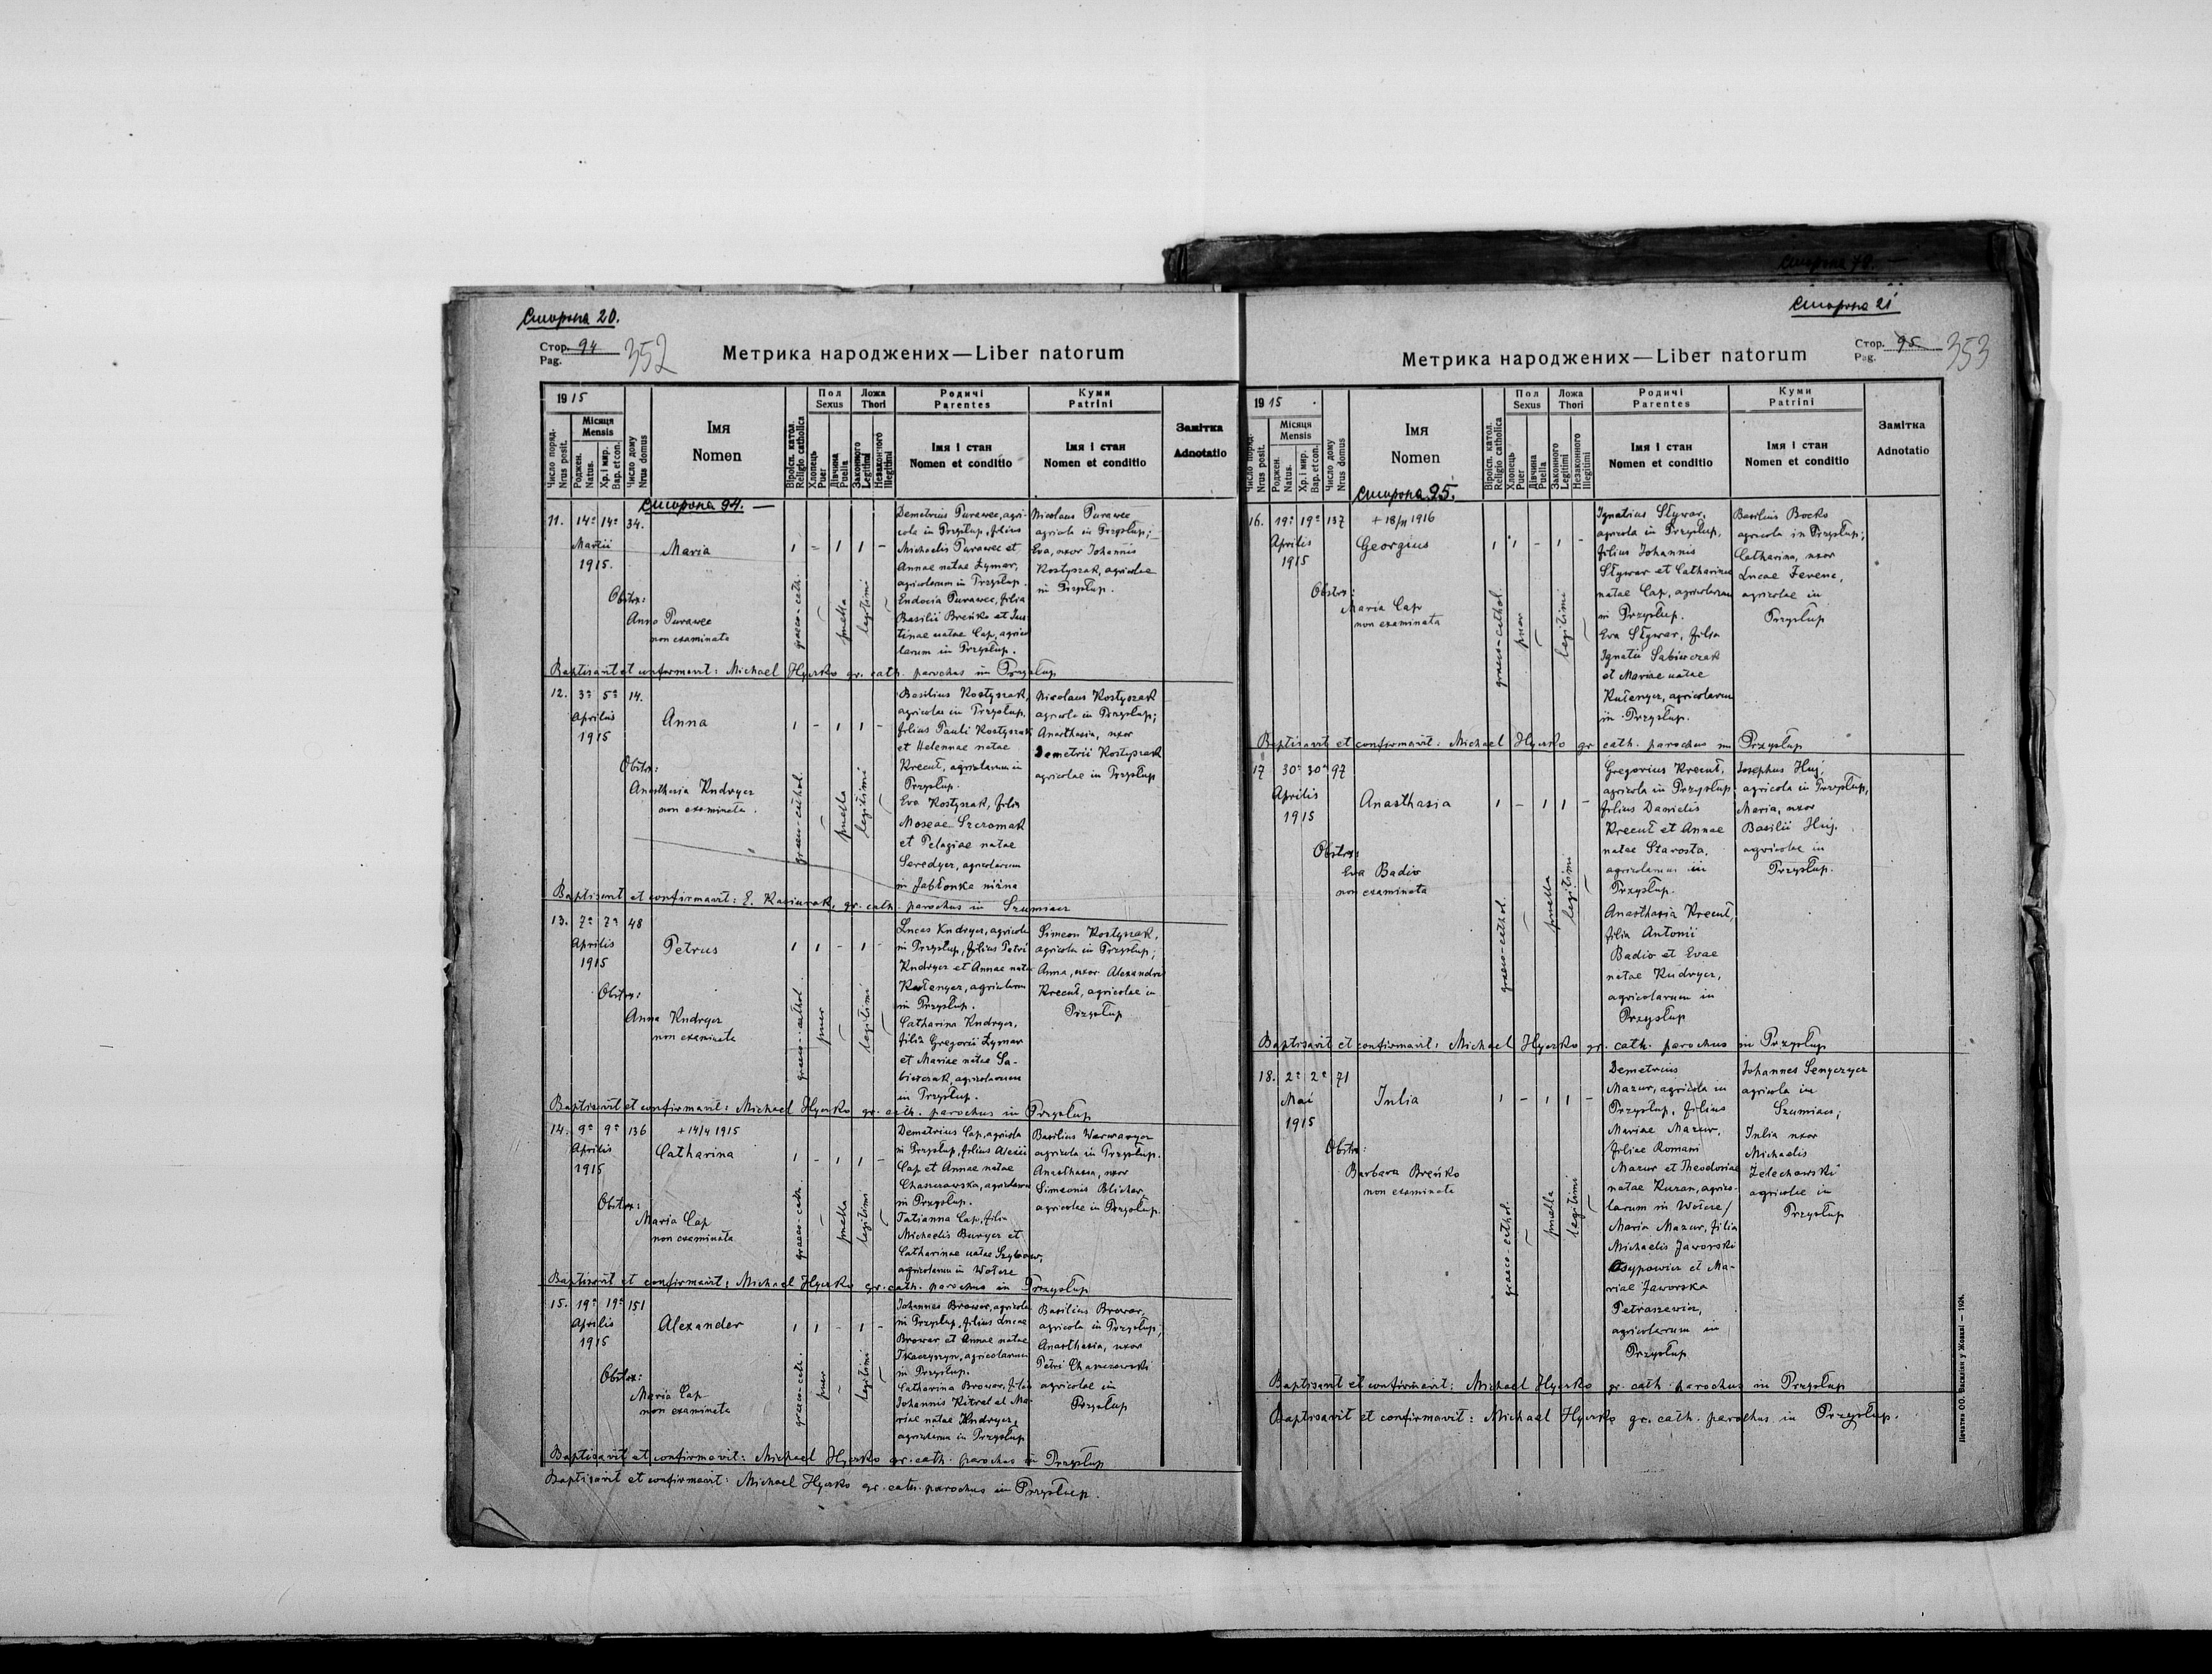 Сторона 20.
Стор. 94
Pag.
352
Метрика народжених—Liber natorum
1915
Число поряд.
Nrus posit.
Місяця
Mensis
Роджен.
Natus.
Хр. і мир.
Bap. et con.
Число дому
Nrus domus
Імя
Nomen
Віроісп. катол.
Religio catholica
Пол
Sexus
Хлопець
Puer
Дівчина
Puella
Ложа
Thori
Законного
Legitimi
Незаконного
Illegitimi
Родичі
Parentes
Імя і стан
Nomen et conditio
Куми
Patrini
Імя і стан
Nomen et conditio
Замітка
Adnotatio
Сторона 94. —
11. 14a 14a 34.
Martii
1915.
Maria
1 - 1 1 -
Obstrx:
Anna Purawec
non examinata
graeco-cath.
puella
legitimi
Demetrius Purawec, agri-
cola in Przysłup, filius
Michaelis Purawec et
Annae natae Łymar,
agricolarum in Przysłup.
Eudocia Purawec, filia
Basilii Breńko et Jus-
tinae natae Cap, agrico
larum in Przysłup.
Nicolaus Purawec
agricola in Przysłup;
Eva, uxor Johannis
Kostyszak, agricolae
in Przysłup.
Baptisavit et confirmavit: Michael Hycko gr. cath. parochus in Przysłup
12. 3a 5a 14.
Aprilis
1915
Anna
1 - 1 1 -
Obstrx:
Anasthasia Kudryez
non examinata.
graeco-cathol.
puella
legitimi
Basilius Kostyszak,
agricola in Przysłup,
filius Pauli Kostyszak
et Helennae natae
Krecuł, agricolarum in
Przysłup.
Eva Kostyszak, filia
Moseae Szczomak
et Pelagiae natae
Seredycz, agricolarum
in Jabłonka niżna
Nicolaus Kostyszak
agricola in Przysłup;
Anasthasia, uxor
Demetrii Kostyszak
agricolae in Przysłup
Baptisavit et confirmavit: E. Kaciurak, gr. cath. parochus in Szumiacz
13. 7a 7a 48
Aprilis
1915
Petrus
1 1 - 1 -
Obstrx:
Anna Kudrycz
non examinata
graeco-cathol.
puer
legitimi
Lucas Kudrycz, agricola
in Przysłup, filius Petri
Kudrycz et Annae natae
Kułenycz, agricolarum
in Przysłup.
Catharina Kudrycz,
filia Gregorii Łymar
et Mariae natae Sa-
biwczak, agricolarum
in Przysłup.
Simeon Kostyszak,
agricola in Przysłup;
Anna, uxor Alexandri
Krecuł, agricolae in
Przysłup
Baptisavit et confirmavit: Michael Hycko gr. cath. parochus in Przysłup
14. 9a 9a 136 + 14/4 1915
Aprilis
1915
Catharina
1 - 1 1 -
Obstrx:
Maria Cap
non examinata
graeco-cath.
puella
legitimi
Demetrius Cap, agricola
in Przysłup, filius Alexii
Cap et Annae natae
Chaszczowska, agricolarum
in Przysłup.
Tatianna Cap, filia
Michaelis Burycz et
Catharinae natae
agricolarum in Wołcze
Basilius Warwarycz
agricola in Przysłup.
Anasthasia, uxor
Simeonis Blichar,
agricolae in Przysłup.
Baptisavit et confirmavit: Michael Hycko gr. cath. parochus in Przysłup
15. 19a 19a 151
Aprilis
1915
Alexander
1 1 - 1 -
Obstrx:
Maria Cap
non examinata
graeco-cath.
puer
legitimi
Johannes Browar, agricola
in Przysłup, filius Lucae
Browar et Annae natae
Tkaczyszyn, agricolarum
in Przysłup.
Catharina Browar, filia
Johannis Kitral et Ma-
riae natae Kudrycz,
agricolarum in Przysłup
Basilius Browar,
agricola in Przysłup;
Anasthasia, uxor
Petri Chaszczowski
agricolae in
Przysłup
Baptisavit et confirmavit: Michael Hycko gr. cath. parochus in Przysłup
Baptisavit et confirmavit: Michael Hycko gr. cath. parochus in Przysłup.
Сторона 21
Стор. 95
Pag.
353
Метрика народжених—Liber natorum
1915
Число поряд.
Nrus posit.
Місяця
Mensis
Роджен.
Natus.
Хр. і мир.
Bap. et con.
Число дому
Nrus domus
Імя
Nomen
Віроісп. катол.
Religio catholica
Пол
Sexus
Хлопець
Puer
Дівчина
Puella
Ложа
Thori
Законного
Legitimi
Незаконного
Illegitimi
Родичі
Parentes
Імя і стан
Nomen et conditio
Куми
Patrini
Імя і стан
Nomen et conditio
Замітка
Adnotatio
Сторона 95.
16. 19a 19a 137 + 1916
Aprilis
1915
Georgius
1 1 - 1 -
Obstrx:
Maria Cap
non examinata
graeco-cathol.
puer
legitimi
Ignatius Stywar,
agricola in Przysłup,
filius Johannis
Stywar et Catharinae
natae Cap, agricolarum
in Przysłup.
Eva Stywar, filia
Ignatii Sabiwczak
et Mariae natae
Kułenycz, agricolarum
in Przysłup.
Basilius Bocko
agricola in Przysłup;
Catharina, uxor
Lucae Ferenc,
agricolae in
Przysłup
Baptisavit et confirmavit: Michael Hycko gr. cath. parochus in Przysłup
17 30a 30a 97
Aprilis
1915
Anasthasia
1 - 1 1 -
Obstrx:
Eva Badio
non examinata
graeco-cathol.
puella
legitimi
Gregorius Krecuł,
agricola in Przysłup
filius Danielis
Krecuł et Annae
natae Starosta,
agricolarum in
Przysłup.
Anasthasia Krecuł,
filia Antonii
Badio et Evae
natae Kudrycz,
agricolarum in
Przysłup
Josephus Huj,
agricola in Przysłup,
Maria, uxor
Basilii Huj.
agricolae in
Przysłup.
Baptisavit et confirmavit: Michael Hycko gr. cath. parochus in Przysłup
18. 2a 2a 71
Mai
1915
Julia
1 - 1 1 -
Obstrx:
Barbara Breńko
non examinata
graeco-cathol.
puella
legitimi
Demetrius
Mazur, agricola in
Przysłup, filius
Mariae Mazur,
filiae Romani
Mazur et Theodosiae
natae Kuzan, agrico-
larum in Wołcze/
Maria Mazur, filia
Michaelis Jaworski
Osypowicz et Ma-
riae Jaworska
Petraszewicz,
agricolarum in
Przysłup
Johannes Senyczycz
agricola in
Szumiacz;
Julia uxor
Michaelis
Żelechowski
agricolae in
Przysłup
Baptisavit et confirmavit: Michael Hycko gr. cath. parochus in Przysłup
Baptisavit et confirmavit: Michael Hycko gr. cath. parochus in Przysłup.
Печатня ОО. Василіян у Жовкві — 1924.